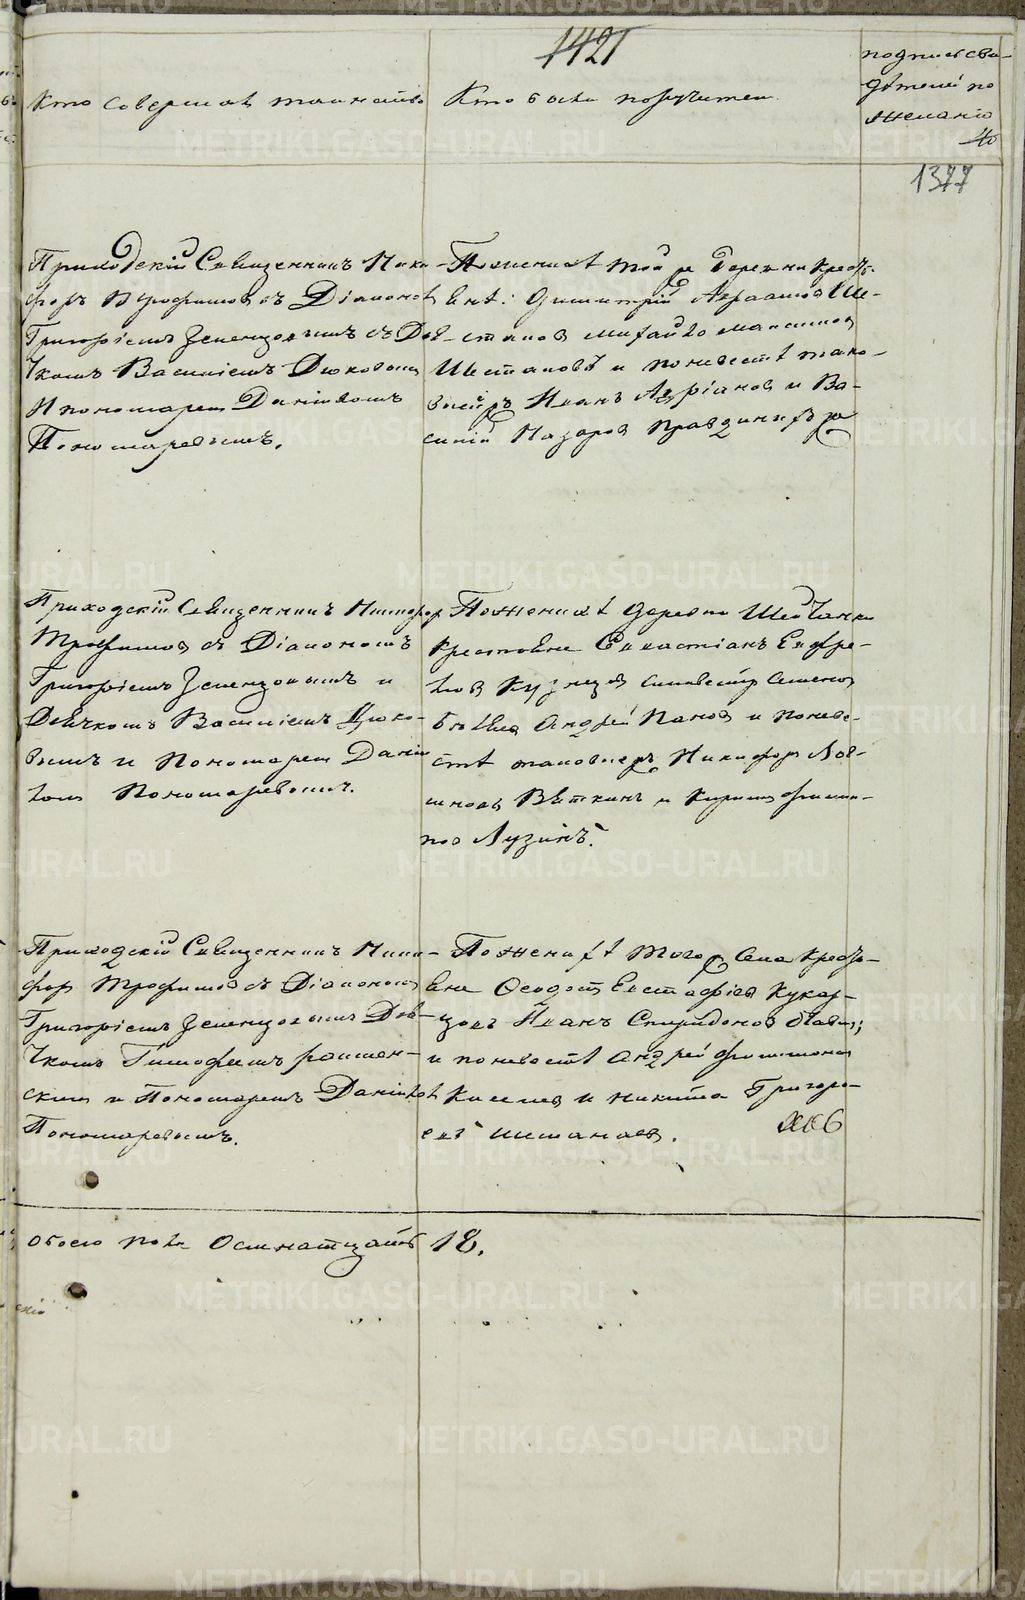 1421
Кто совершал таинство
Кто были поручители
подпись сви-
дѣтелей по
желанію
1377
Приходскій Священникъ Ники-
форъ Трофимовъ съ Діакономъ
Григоріемъ Зеленцовымъ съ Дья-
чкомъ Василіемъ Дюковымъ
И пономаремъ Даніиломъ
Пономаревымъ.
По женихѣ той же Деревни Кресть-
яне: Димитрій Авраамов Ше-
стаков Михайло Максимов
Шестаковъ и по невестѣ тако-
выежъ Иванъ Адріанов и Ва-
силій Назаров
Приходскій Священникъ Никифор
Трофимов съ Діакономъ
Григоріемъ Зеленцовымъ и
Дьячкомъ Василіемъ Дюко-
вымъ и Пономарем Даніи-
лом Пономаревымъ.
По женихѣ деревни
Крестьяне Севастіанъ Евфре-
мов Кузнецов Симвестр Семенов
Андрей Панов и по неве-
стѣ таковыежъ Никифор
Вяткинъ и Кирил Филип-
пов Лузинъ.
Приходскій Священникъ Ники-
фор Трофимов съ Діакономъ
Григоріемъ Зеленцовымъ Дья-
чкомъ Тимофеемъ
и Пономаремъ Даніилом
Пономаревымъ.
По женихѣ того же Села Крестья-
яне Феодот Евстафіев
Иванъ Спиридонов
и по невестѣ Андрей Филимонов
Киселев и Никита Григорь-
евъ Шишанаев.
обоего пола Осмнатцать 18.
METRIKI.GASO-URAL.RU